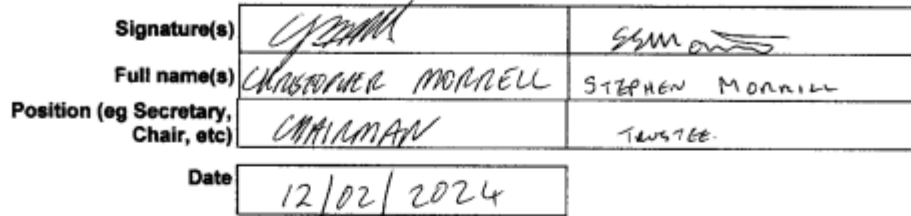 Signature(s)
Full name(s) CHRISTOPHER MORRELL STEPHEN MORRILL
Position (eg Secretary,
Chair, etc) CHAIRMAN TRUSTEE.
Date 12/02/2024